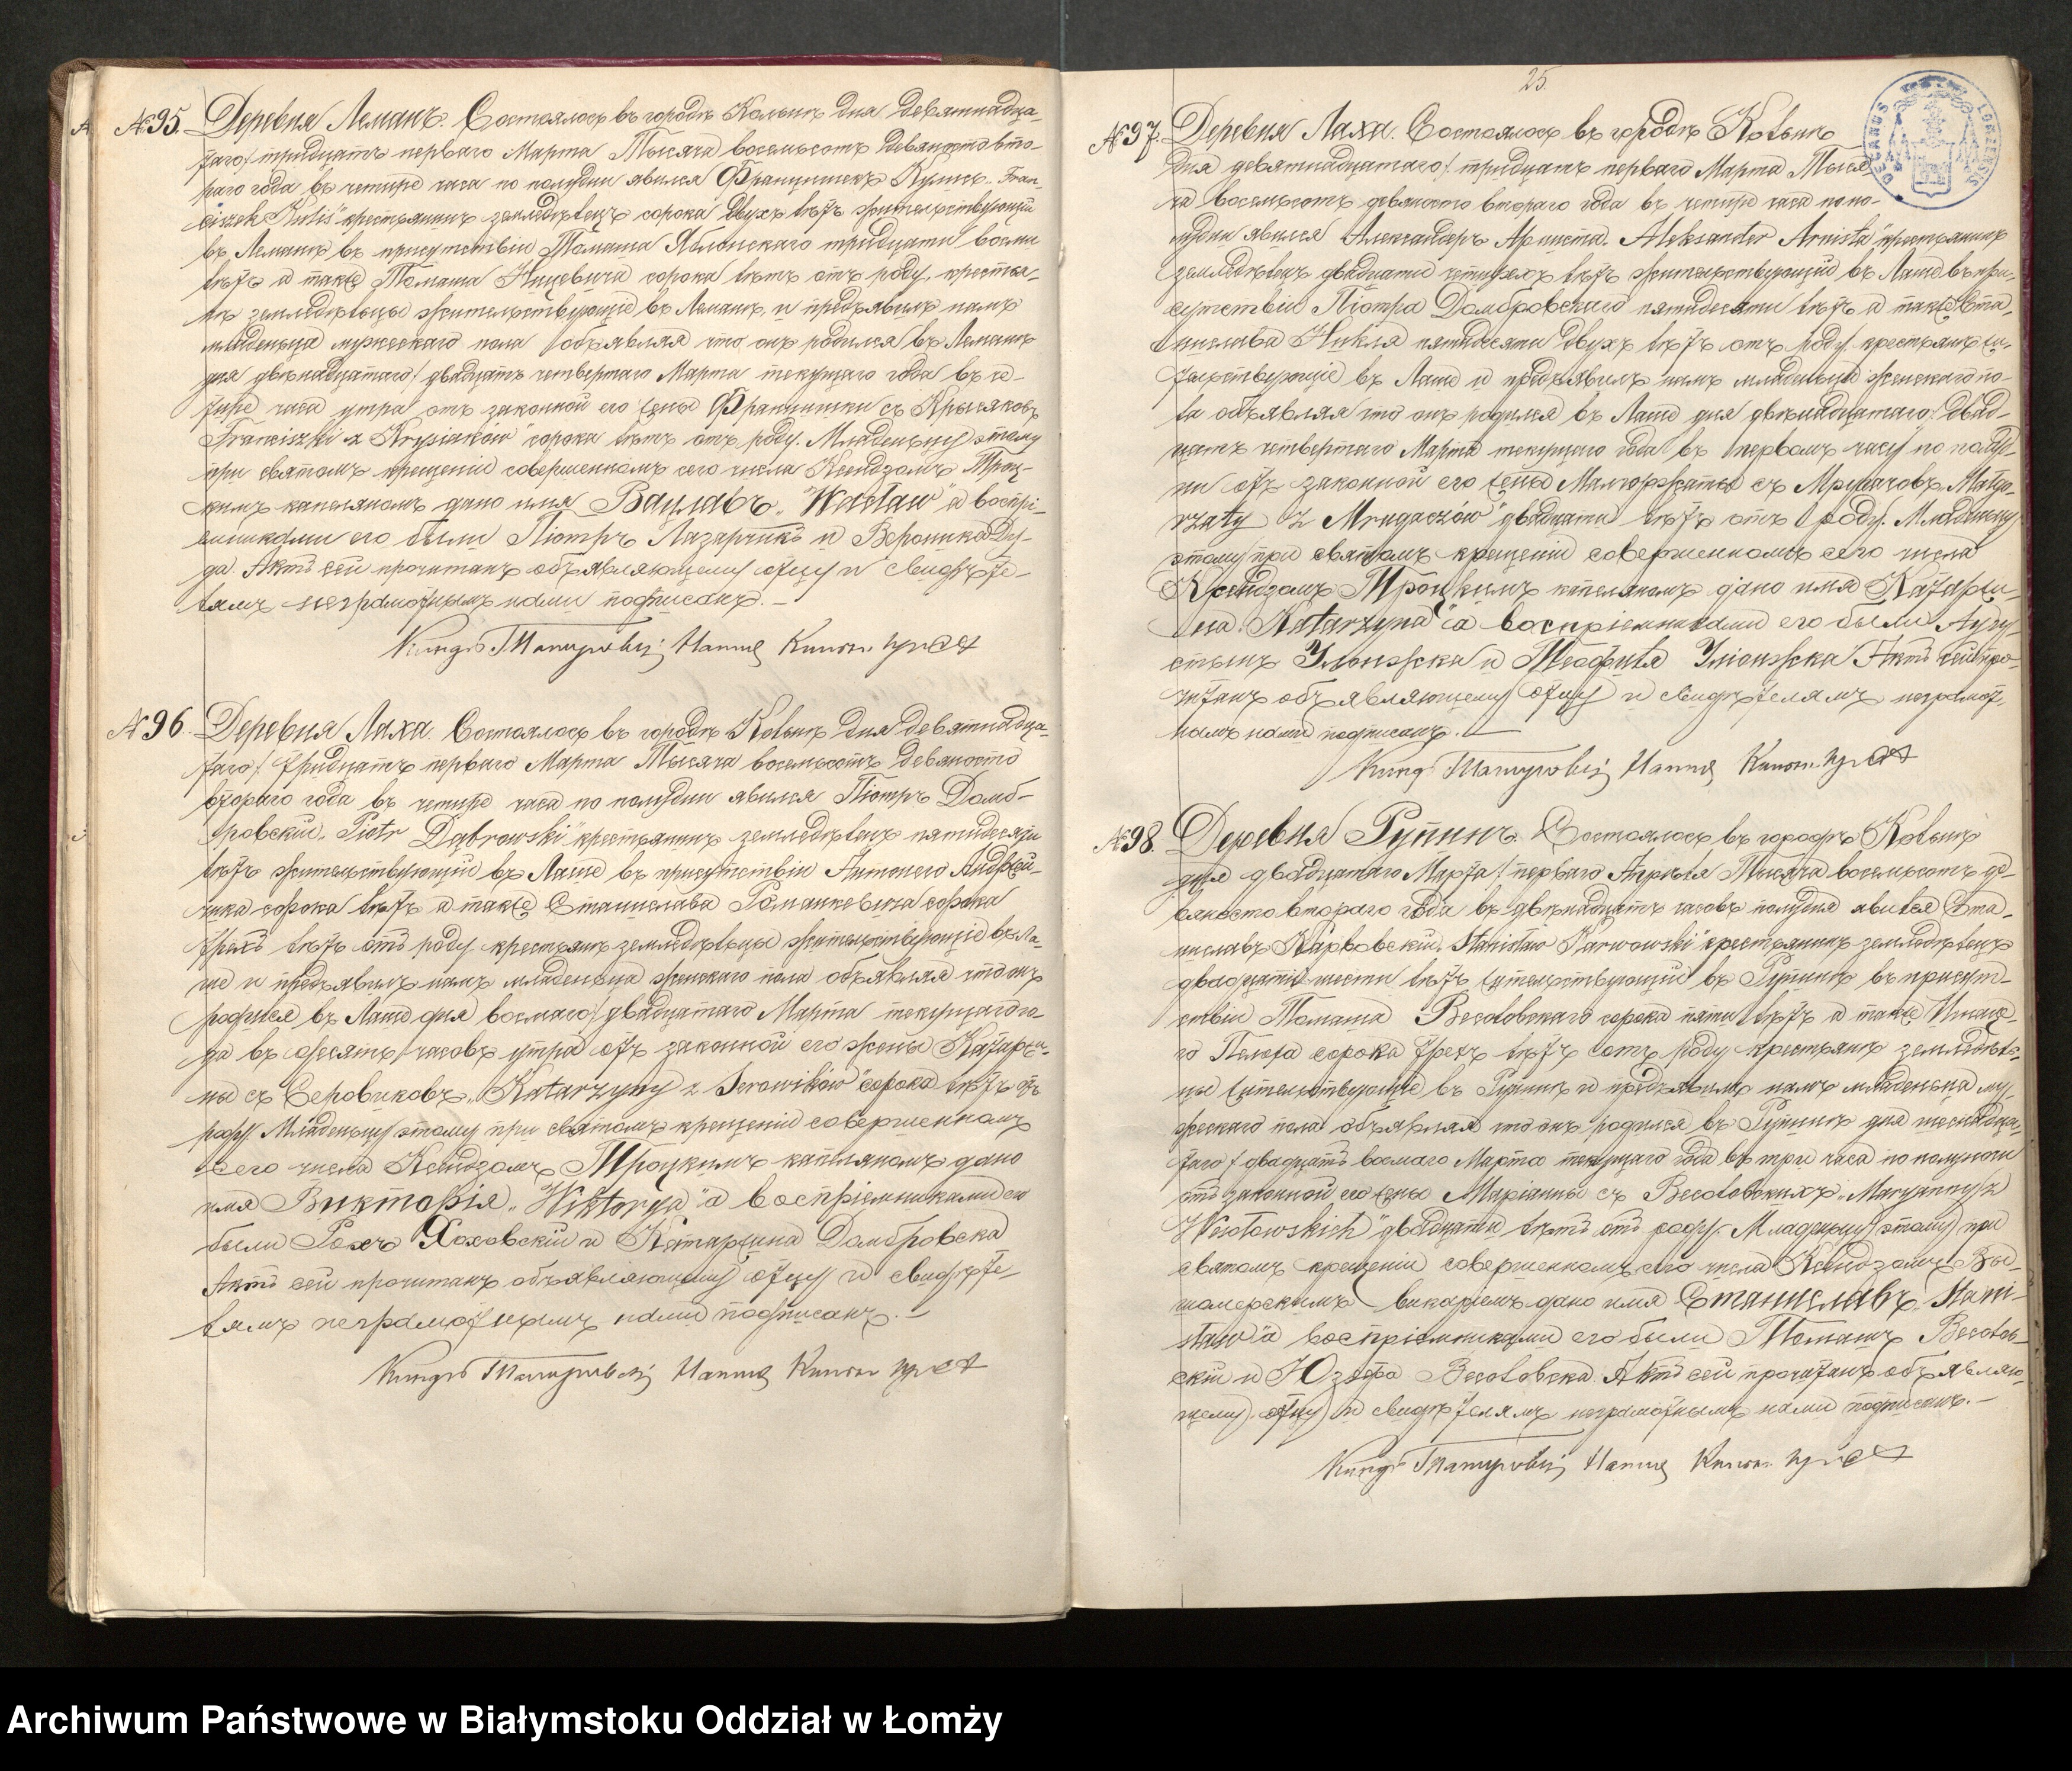 №95. Деревня Леманъ. Состоялось въ городѣ Кольнѣ дня девятнадца-
таго/ тридцать перваго Марта Тысяча восемьсотъ девяносто вто-
раго года въ четыре часа по полудни явился Францишекъ Кулисъ „Fran-
ciszek Kulis" крестьянинъ земледѣлецъ сорока двухъ лѣтъ жительствующій
въ Леманѣ въ присутствіи Томаша Яблонскаго тридцати восьми
лѣтъ и также Томаша сорока лѣтъ отъ роду, крестья-
не земледѣльцы жительствующіе въ Леманѣ, и предъявилъ намъ
младенца мужескаго пола объявляя что онъ родился въ Леманѣ
дня двѣнадцатаго/ двадцать четвертаго Марта текущаго года въ че-
тыре часа утра отъ законной его жены Францишки съ Крысяковъ
„Franciszki z Krysiaków" сорока лѣтъ отъ роду. Младенцу этому
при святомъ крещеніи совершенномъ сего числа Ксендзомъ Троц-
кимъ капеляномъ дано имя Вацлавъ „Wacław" а воспрі-
емниками его были Піотръ Лазарчикъ и Вероника Ду-
да. Актъ сей прочитанъ объявляющему отцу и свидѣте-
лямъ неграмотнымъ нами подписанъ.—
№96. Деревня Лаха. Состоялось въ городѣ Кольнѣ дня девятнадца-
таго/ тридцать перваго Марта Тысяча восемьсотъ девяносто
втораго года въ четыре часа по полудни явился Піотръ Домб-
ровскій „Piotr Dąbrowski" крестьянинъ земледѣлецъ пятидесяти
лѣтъ жительствующій въ Лахе въ присутствіи Антонего Андрей-
чика сорока лѣтъ и также Станислава Романкевича сорока
трехъ лѣтъ отъ роду крестьяне земледѣльцы жительствующіе въ Ла-
хе и предъявилъ намъ младенца женскаго пола объявляя что онъ
родился въ Лахе дня восьмаго/ двадцатаго Марта текущаго го-
да въ десять часовъ утра отъ законной его жены Катаржи-
ны съ Серовиковъ „Katarzyny z Serowików" сорока лѣтъ отъ
роду. Младенцу этому при святомъ крещеніи совершенномъ
сего числа Ксендзомъ Троцкимъ капеляномъ дано
имя Викторія „Wiktorya" а воспріемниками его
были Рохъ Хоховскій и Катаржина Домбровска
Актъ сей прочитанъ объявляющему отцу и свидѣте-
лямъ неграмотнымъ нами подписанъ.—
25.
DECANUS LOMZENSIS
№97. Деревня Лаха. Состоялось въ городѣ Кольнѣ
дня девятнадцатаго/ тридцать перваго Марта Тыся-
ча восемьсотъ девяносто втораго года въ четыре часа по по-
лудни явился Александръ Арниста „Aleksander Arnista" крестьянинъ
земледѣлецъ двадцати четырехъ лѣтъ жительствующій въ Лахе въ при-
сутствіи Піотра Домбровскаго пятидесяти лѣтъ и также Ста-
нислава Никля пятидесяти двухъ лѣтъ отъ роду крестьяне жи-
тельствующіе въ Лахе и предъявилъ намъ младенца женскаго по-
ла объявляя что онъ родился въ Лахе дня двѣнадцатаго/ двад-
цать четвертаго Марта текущаго года въ первомъ часу по полуд-
ни отъ законной его жены Малгоржаты съ Мругачовъ „Małgo-
rzaty z Mrugaczów" двадцати лѣтъ отъ роду. Младенцу
этому при святомъ крещеніи совершенномъ сего числа
Ксендзомъ Троцкимъ капеляномъ дано имя Катаржи-
на „Katarzyna" а воспріемниками его были Авгу-
стынъ и Теофиля Актъ сей про-
читанъ объявляющему отцу и свидѣтелямъ неграмот-
нымъ нами подписанъ.—
№98. Деревня Рупинъ. Состоялось въ городѣ Кольнѣ
дня двадцатаго Марта/ перваго Апрѣля Тысяча восемьсотъ де-
вяносто втораго года въ двѣнадцать часовъ полудня явился Ста-
ниславъ Карвовскій „Stanisław Karwowski" крестьянинъ земледѣлецъ
двадцати шести лѣтъ жительствующій въ Рупинѣ въ присут-
ствіи Томаша Весоловскаго сорока пяти лѣтъ и также Игнаце-
го сорока трехъ лѣтъ отъ роду крестьяне земледѣль-
цы жительствующіе въ Рупинѣ и предъявилъ намъ младенца му-
жескаго пола объявляя что онъ родился въ Рупинѣ дня шестнадца-
таго/ двадцать восьмаго Марта текущаго года въ три часа по полуночи
отъ законной его жены Маріанны съ Весоловскихъ „Maryanny z
Wesołowskich" двадцати лѣтъ отъ роду. Младенцу этому при
святомъ крещеніи совершенномъ сего числа Ксендзомъ Вы-
шомерскимъ викаріемъ дано имя Станиславъ „Stani-
sław" а воспріемниками его были Томашъ Весолов-
скій и Юзефа Весоловска. Актъ сей прочитанъ объявляю-
щему отцу и свидѣтелямъ неграмотнымъ нами подписанъ.—
Archiwum Państwowe w Białymstoku Oddział w Łomży